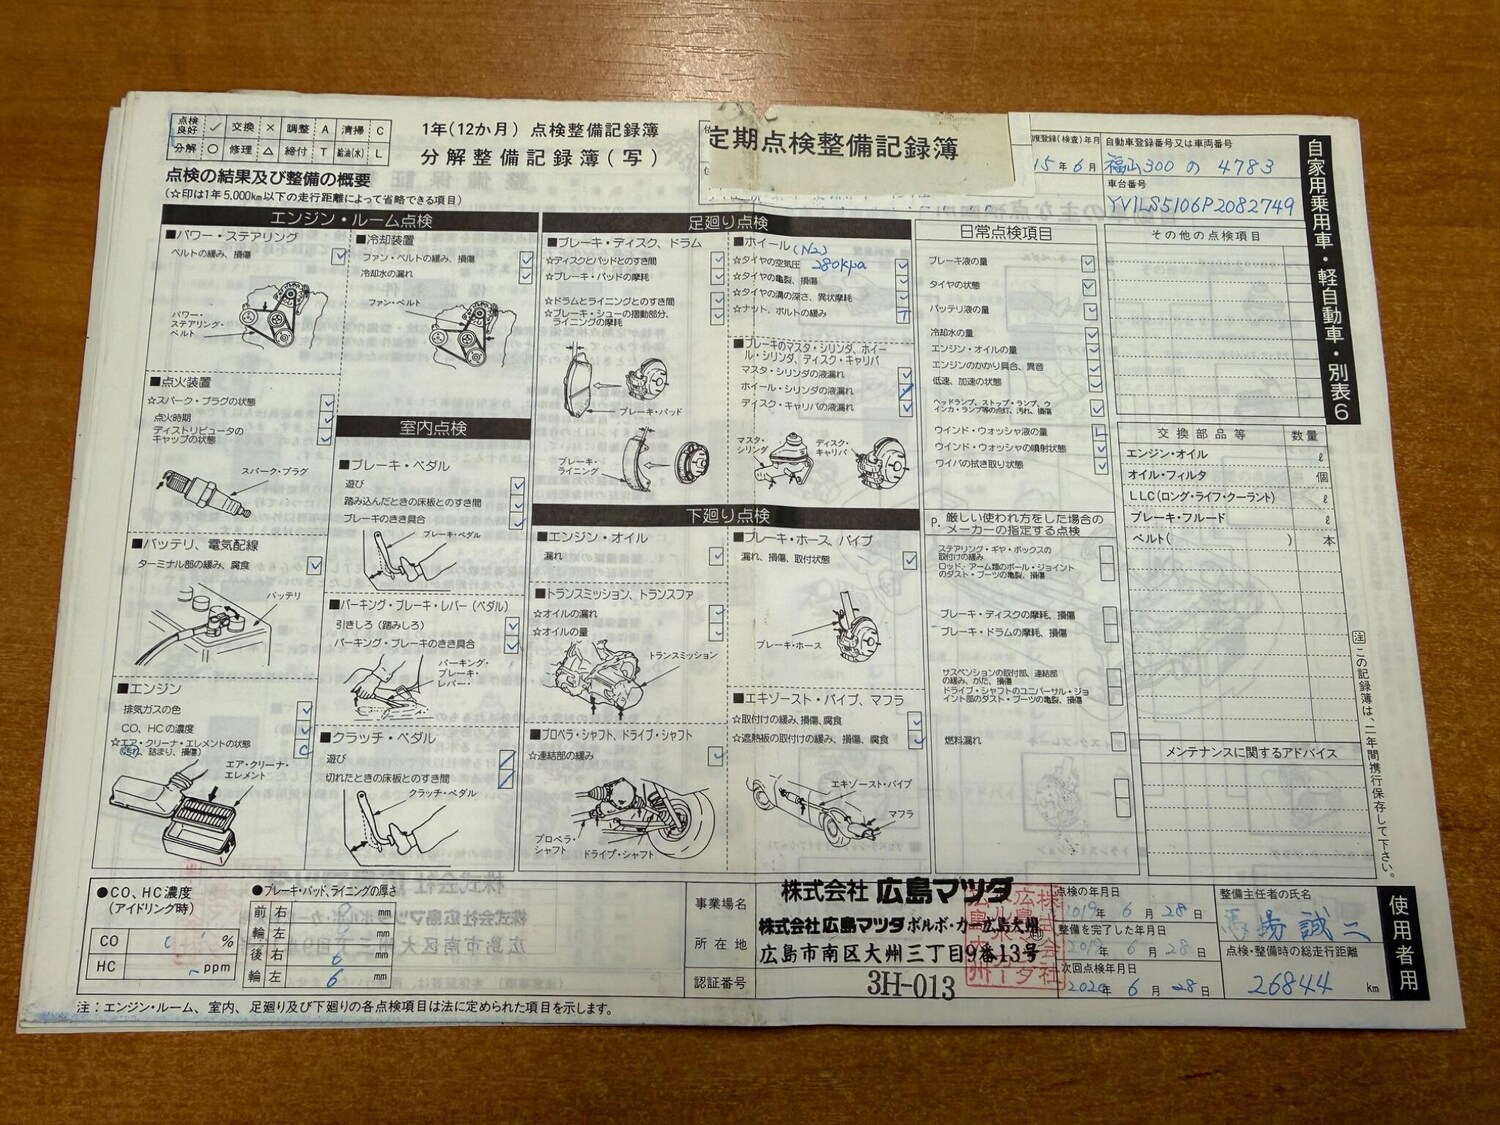 点検良好 ✓ 交換 × 調整 A 清掃 C
分解 ○ 修理 △ 締付 T 給油(水) L
1年(12か月) 点検整備記録簿
分解整備記録簿(写)
定期点検整備記録簿
点検の結果及び整備の概要
(☆印は1年5,000km以下の走行距離によって省略できる項目)
15年6月
自動車登録番号又は車両番号
福山300 の 4783
車台番号
YV1LS5106P2082749
自家用乗用車・軽自動車・別表6
エンジン・ルーム点検
■パワー・ステアリング
ベルトの緩み、損傷
パワー・
ステアリング・
ベルト
■冷却装置
ファン・ベルトの緩み、損傷
冷却水の漏れ
ファン・ベルト
■点火装置
☆スパーク・プラグの状態
点火時期
ディストリビュータの
キャップの状態
スパーク・プラグ
■バッテリ、電気配線
ターミナル部の緩み、腐食
バッテリ
■エンジン
排気ガスの色
CO、HCの濃度
☆エア・クリーナ・エレメントの状態
(汚れ、詰まり、損傷)
エア・クリーナ・
エレメント
室内点検
■ブレーキ・ペダル
遊び
踏み込んだときの床板とのすき間
ブレーキのきき具合
ブレーキ・ペダル
■パーキング・ブレーキ・レバー(ペダル)
引きしろ(踏みしろ)
パーキング・ブレーキのきき具合
パーキング・
ブレーキ・
レバー・
■クラッチ・ペダル
遊び
切れたときの床板とのすき間
クラッチ・ペダル
足廻り点検
■ブレーキ・ディスク、ドラム
☆ディスクとパッドとのすき間
☆ブレーキ・パッドの摩耗
☆ドラムとライニングとのすき間
☆ブレーキ・シューの摺動部分、
ライニングの摩耗
ブレーキ・パッド
ブレーキ・
ライニング
■ホイール (N2)
☆タイヤの空気圧 280kpa
☆タイヤの亀裂、損傷
☆タイヤの溝の深さ、異状摩耗
☆ナット、ボルトの緩み T
■ブレーキのマスタ・シリンダ、ホイー
ル・シリンダ、ディスク・キャリパ
マスタ・シリンダの液漏れ
ホイール・シリンダの液漏れ
ディスク・キャリパの液漏れ
マスタ・
シリンダ
ディスク・
キャリパ
下廻り点検
■エンジン・オイル
漏れ
■トランスミッション、トランスファ
☆オイルの漏れ
☆オイルの量
トランスミッション
■プロペラ・シャフト、ドライブ・シャフト
☆連結部の緩み
プロペラ・
シャフト
ドライブ・シャフト
■ブレーキ・ホース、パイプ
漏れ、損傷、取付状態
ブレーキ・ホース
■エキゾースト・パイプ、マフラ
☆取付けの緩み、損傷、腐食
☆遮熱板の取付けの緩み、損傷、腐食
エキゾースト・パイプ
マフラ
日常点検項目
ブレーキ液の量
タイヤの状態
バッテリ液の量
冷却水の量
エンジン・オイルの量
エンジンのかかり具合、異音
低速、加速の状態
ヘッドランプ、ストップ・ランプ、ウ
インカ・ランプ等の点灯、汚れ、損傷
ウインド・ウォッシャ液の量
ウインド・ウォッシャの噴射状態
ワイパの拭き取り状態
P. 厳しい使われ方をした場合の
メーカーの指定する点検
ステアリング・ギヤ・ボックスの
取付けの緩み
ロッド、アーム類のボール・ジョイント
のダスト・ブーツの亀裂、損傷
ブレーキ・ディスクの摩耗、損傷
ブレーキ・ドラムの摩耗、損傷
サスペンションの取付部、連結部
の緩み、がた、損傷
ドライブ・シャフトのユニバーサル・ジョ
イント部のダスト・ブーツの亀裂、損傷
燃料漏れ
その他の点検項目
交換部品等 数量
エンジン・オイル ℓ
オイル・フィルタ 個
LLC(ロング・ライフ・クーラント) ℓ
ブレーキ・フルード ℓ
ベルト( ) 本
メンテナンスに関するアドバイス
注 この記録簿は、二年間携行保存して下さい。
●CO、HC濃度
(アイドリング時)
CO %
HC ppm
●ブレーキ・パッド、ライニングの厚さ
前輪 右 9 mm
左 mm
後輪 右 6 mm
左 6 mm
事業場名
株式会社 広島マツダ
株式会社広島マツダ ボルボ・カー広島大州
所在地
広島市南区大州三丁目9番13号
認証番号
3H-013
点検の年月日
2019年 6月 28日
整備を完了した年月日
2019年 6月 28日
次回点検年月日
2020年 6月 28日
整備主任者の氏名
点検・整備時の総走行距離
26844 km
使用者用
注:エンジン・ルーム、室内、足廻り及び下廻りの各点検項目は法に定められた項目を示します。